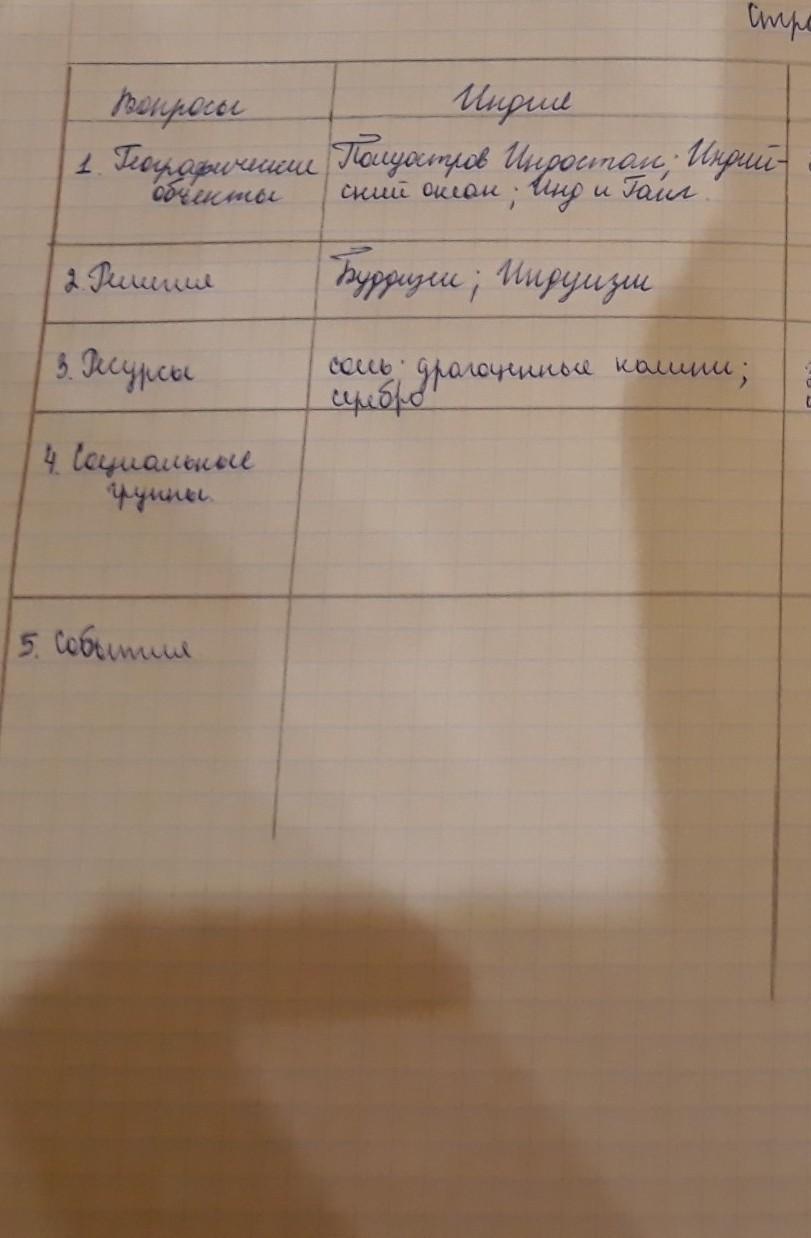 Вопросы Индия
1. Географические Полуостров Индостан; Индий-
объекты ский океан; Инд и Ганг.
2. Религия Буддизм; Индуизм
3. Ресурсы соль; драгоценные камни;
серебро
4. Социальные
группы.
5. События